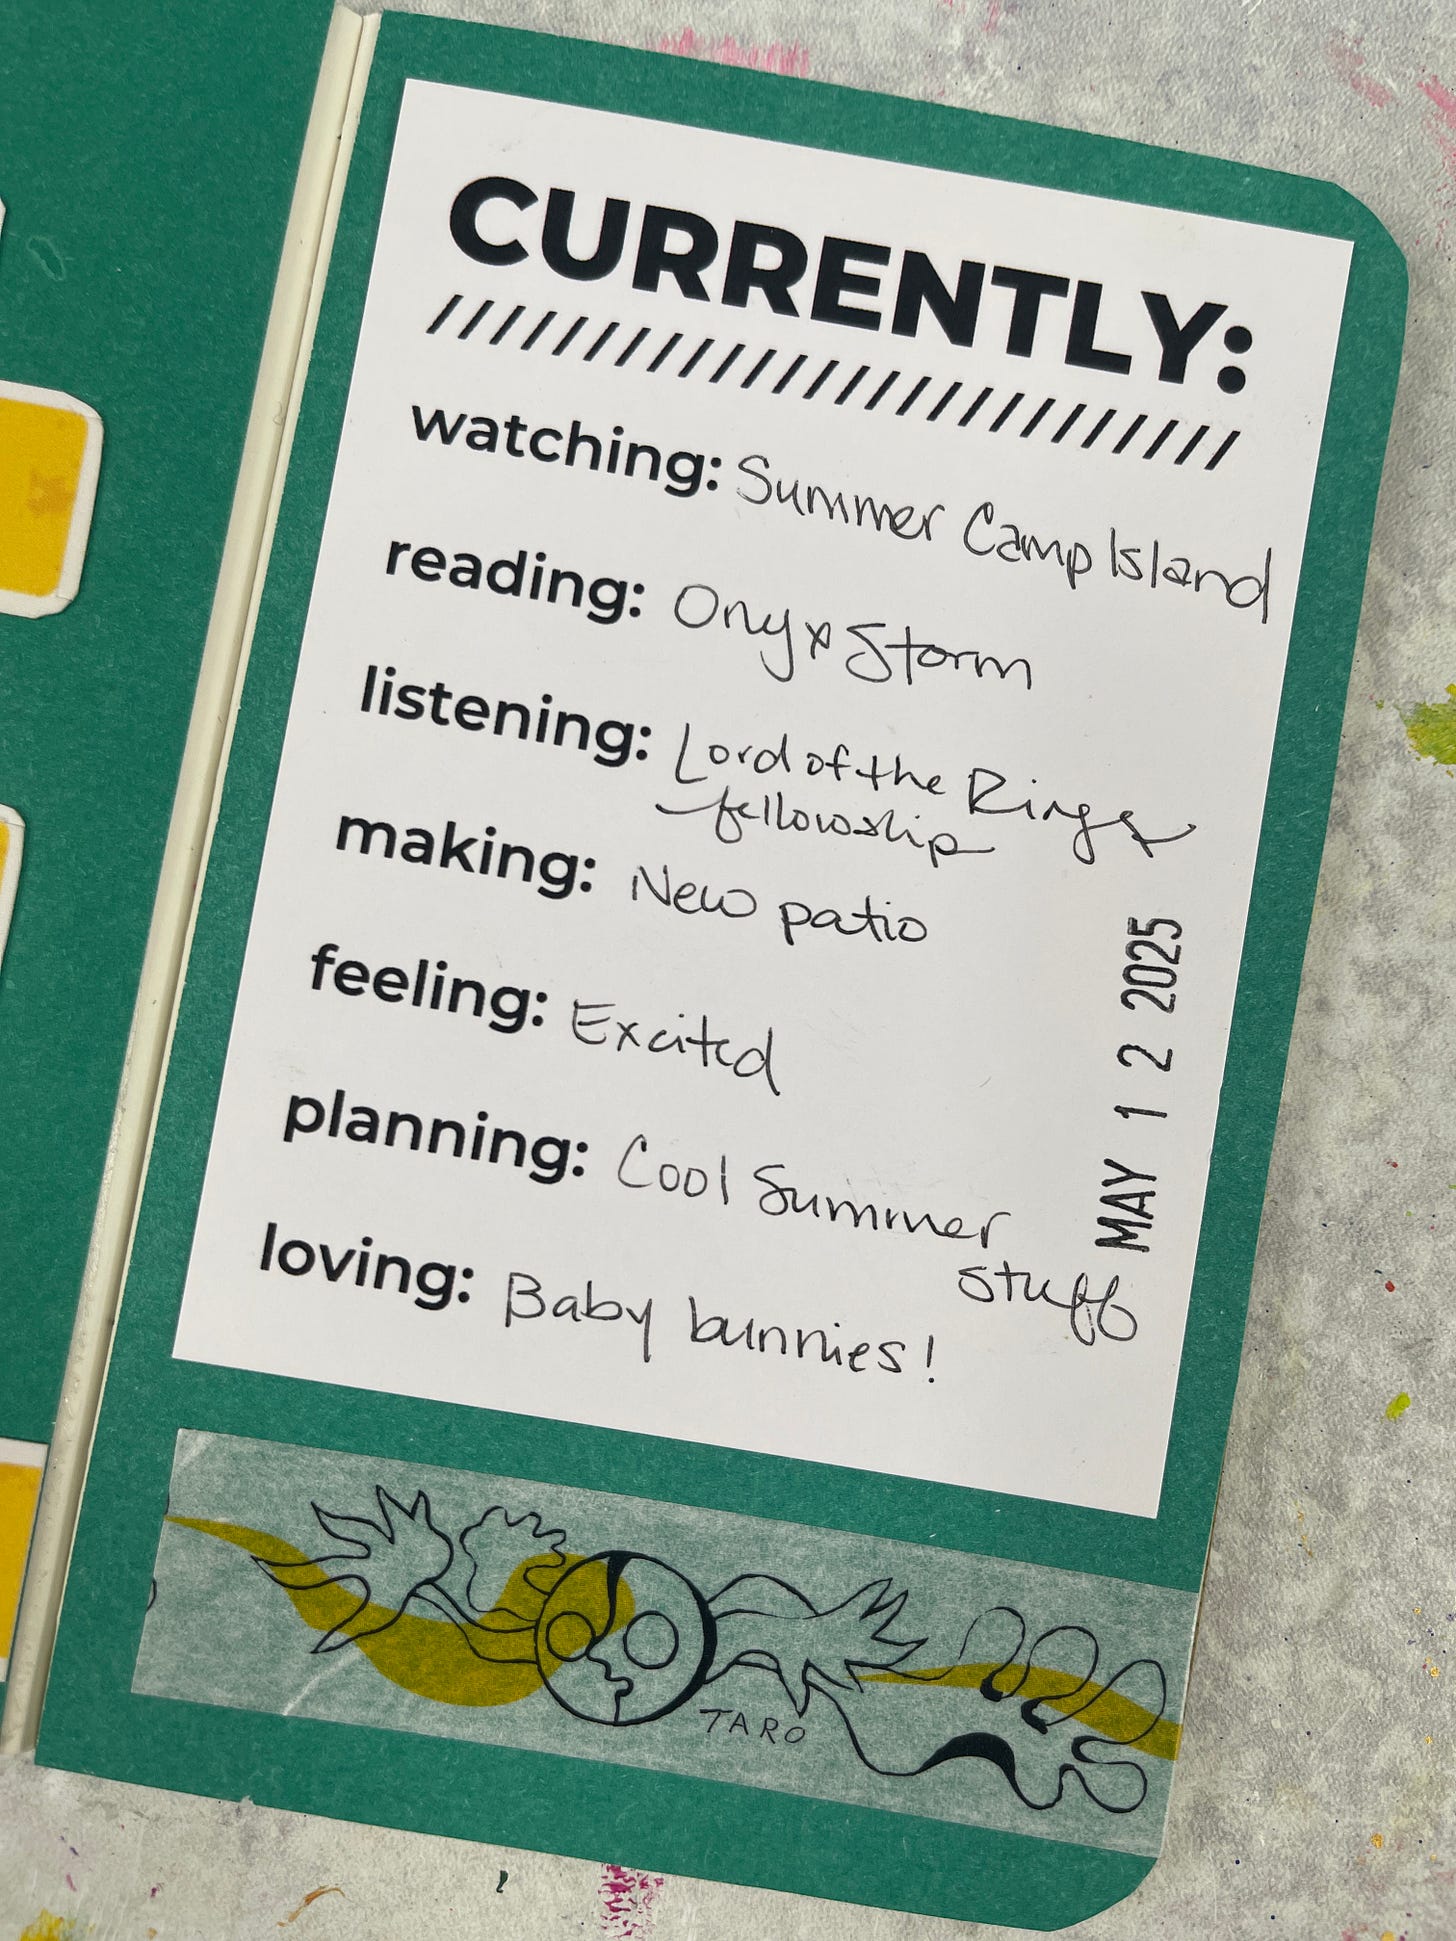 CURRENTLY:
////////////////////////// 
watching: Summer Camp Island
reading: Onyx Storm
listening: Lord of the Rings
fellowship
making: New patio
feeling: Excited
planning: Cool Summer
stuff
loving: Baby bunnies!
MAY 12 2025
TARO